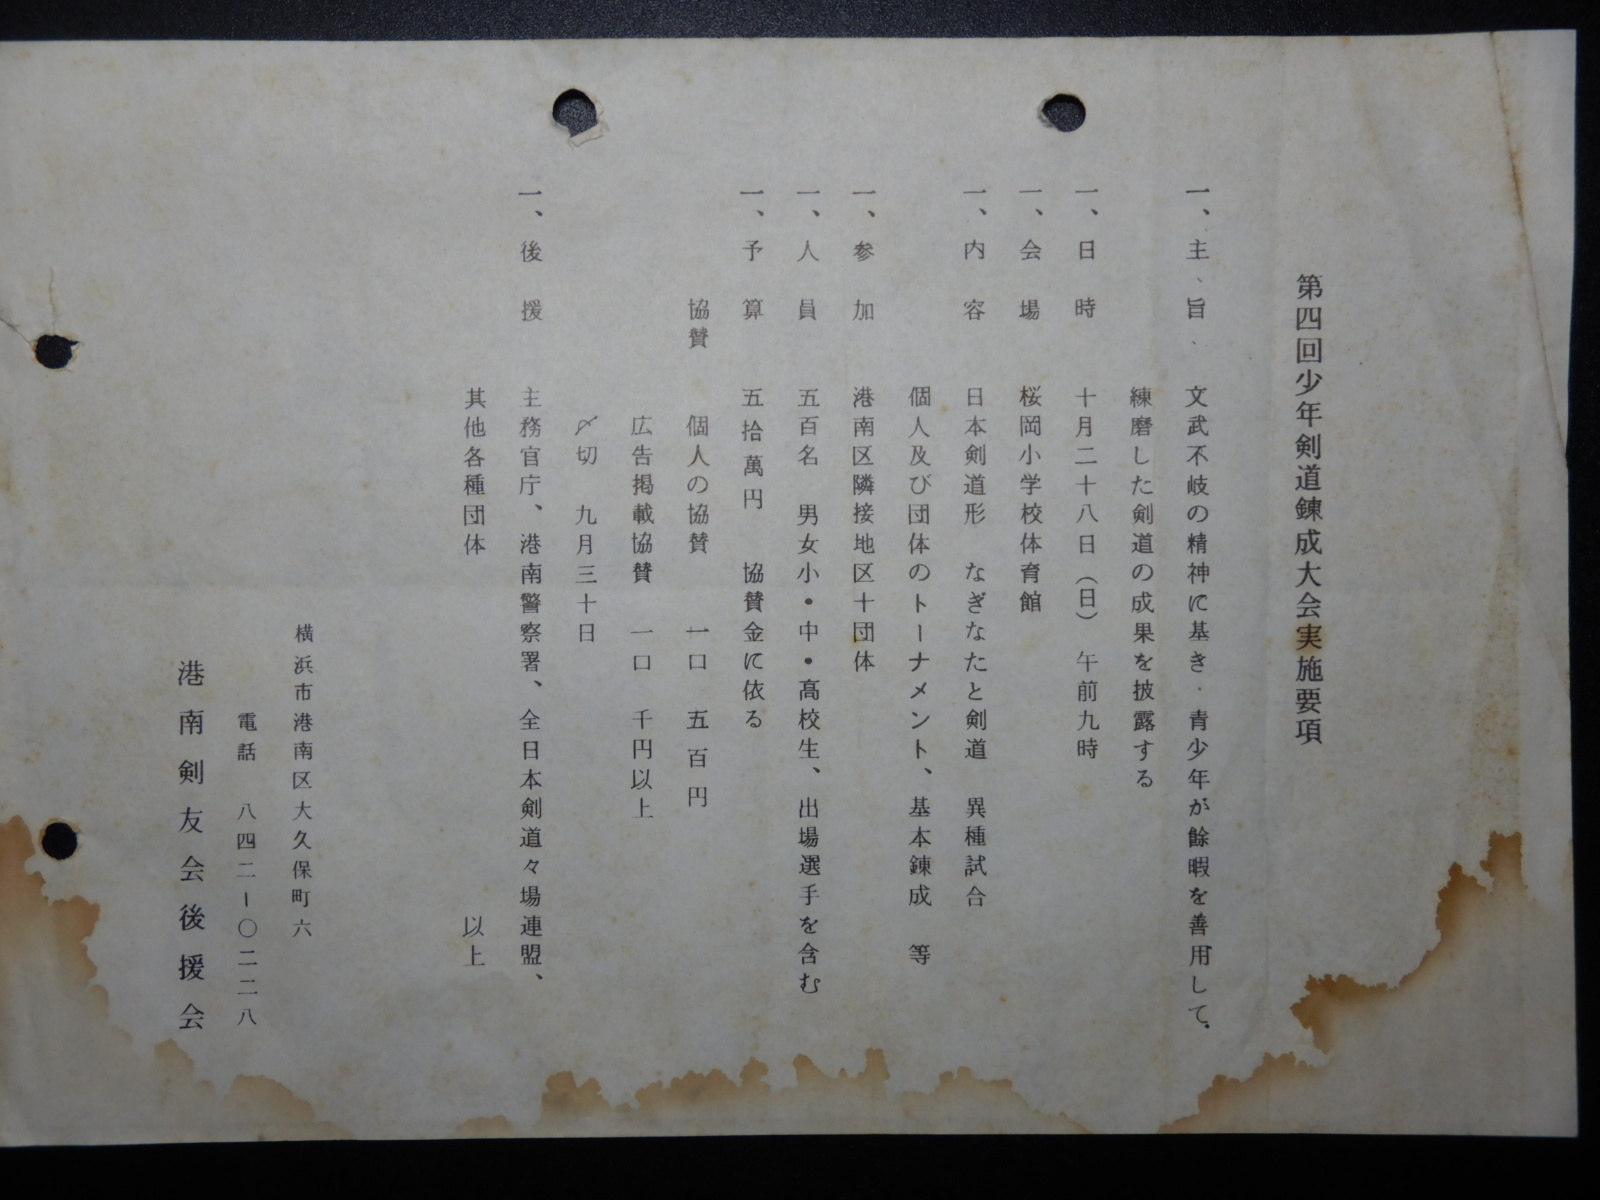 第四回少年剣道錬成大会実施要項
一、主、旨、　文武不岐の精神に基き・青少年が餘暇を善用して、
練磨した剣道の成果を披露する
一、日　時　十月二十八日（日）　午前九時
一、会　場　桜岡小学校体育館
一、内　容　日本剣道形　なぎなたと剣道　異種試合
個人及び団体のトーナメント、基本錬成　等
一、参　加　港南区隣接地区十団体
一、人　員　五百名　男女小・中・高校生、出場選手を含む
一、予　算　五拾萬円　協賛金に依る
協賛　個人の協賛　一口　五百円
広告掲載協賛　一口　千円以上
〆切　九月三十日
一、後　援　主務官庁、港南警察署、全日本剣道々場連盟、
其他各種団体　以上
横浜市港南区大久保町六
電話　八四二ー〇二二八
港南剣友会後援会